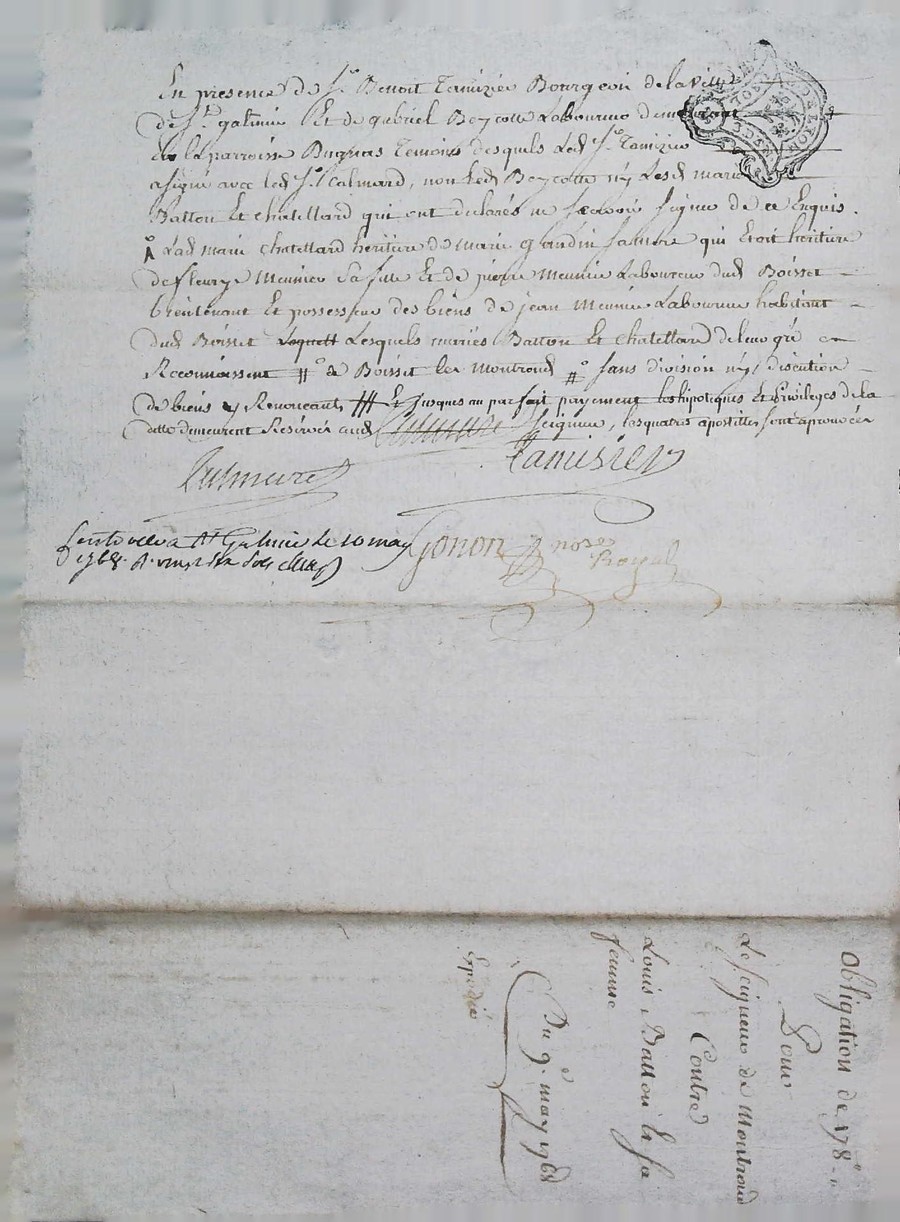 En presence de Sr. Benoit Tamizier Bourgeois de la ville
de St. galmier Et de gabriel Beycotte Laboureur demeurant
la parroisse Temoins desquels Led. Sr. Tamizier
a signé avec led. Sr. , non Led. Beycotte ny Lesd. mariés
Batton Et chatellard qui ont declarés ne scavoir signer de ce Enquis.
A Lad. marie chatellard heritiere de marie grandin sa mere qui Etoit heritiere
de fleurye Meunier sa Et de pierre Meunier Laboureur dud. Boisset
bientenant Et possesseur des biens de jean Meunier Laboureur habitant
dud. Boisset Lesquels mariés Batton Et chatellard de leur gré
Reconnoissent # de Boisset les Montrond # sans division ny discution
de biens y Renoncant, Et jusques au parfait payement les hipoteques Et Privileges de la
dette demeurent Reservés aud. seigneur, les quatres apostilles sont aprouvées
Tamisier
a St Galmier Le 10 may
1768.
Gonon nore
Royal
Obligation de 178
Pour
Le seigneur de Montrond
Contre
Louis Batton Et sa
femme
Du 9e. may 1768
Expedié